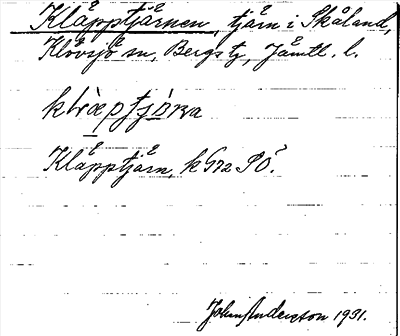 Kläpptjärnen, tjärn i Skåland,
Klövsjö sn, Bergs tg, Jämtl. l.
Kläpptjärn, k G72 SÖ.
John Anderson 1931.